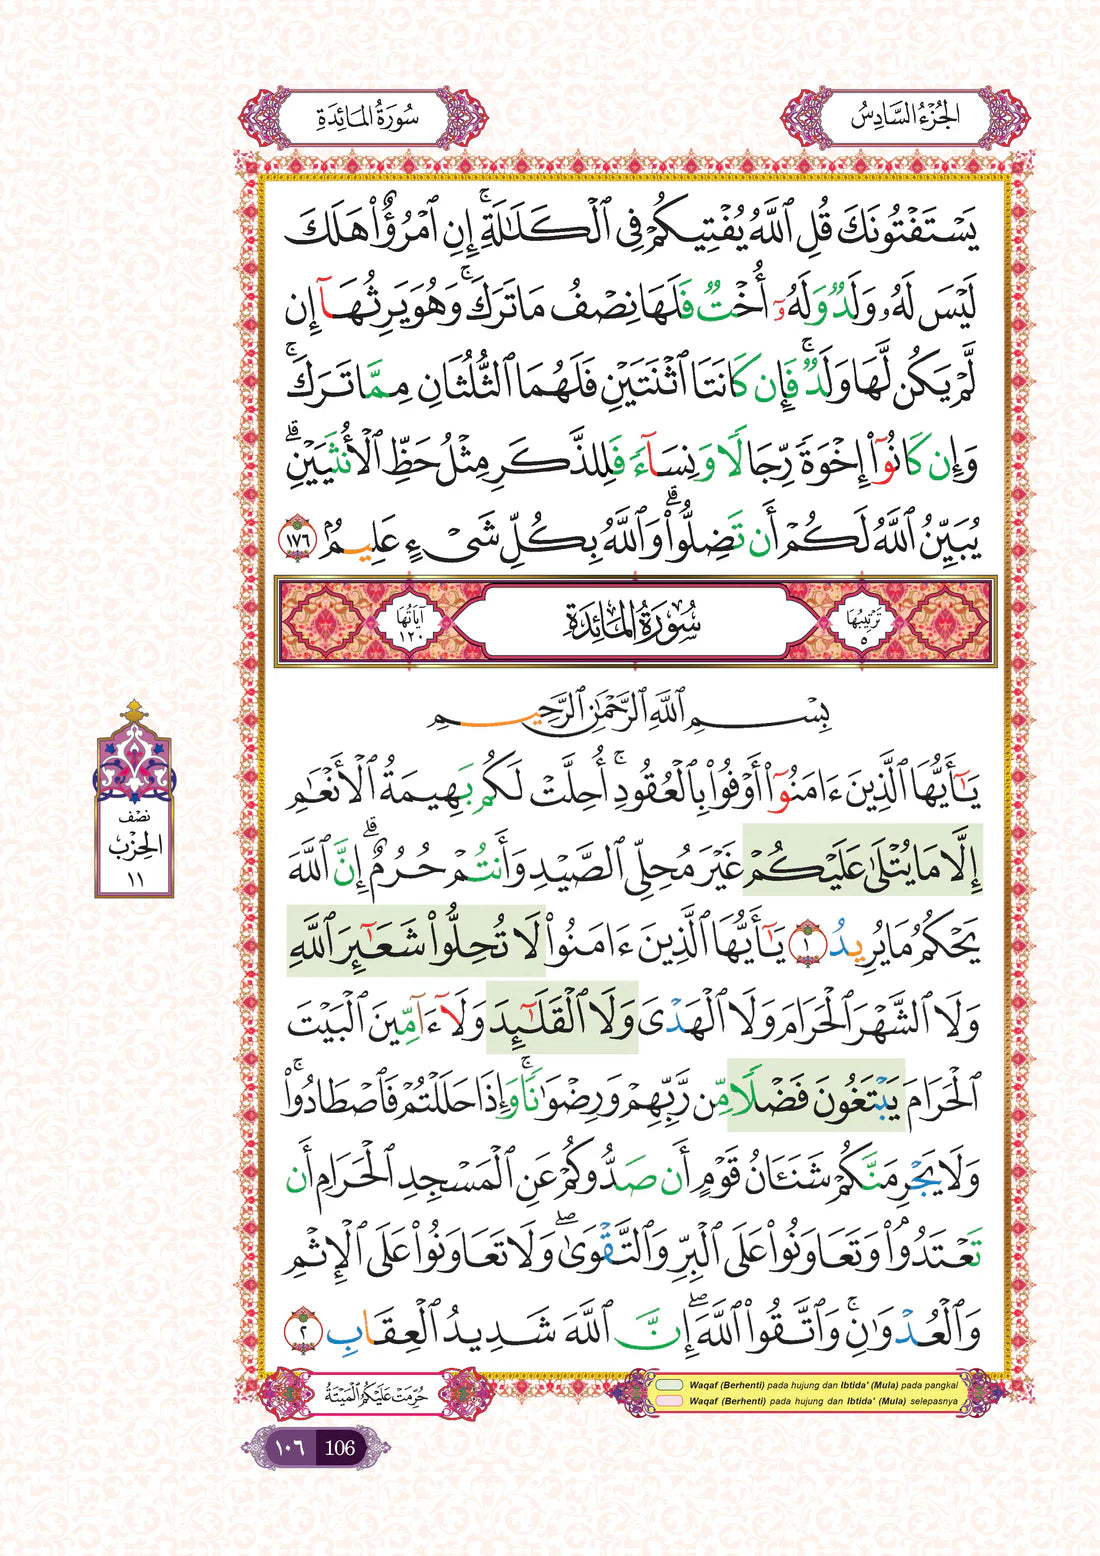 الجُزْءُ السَّادِسُ
سُورَةُ المَائِدَةِ
يَسْتَفْتُونَكَ قُلِ ٱللَّهُ يُفْتِيكُمْ فِى ٱلْكَلَـٰلَةِ ۚ إِنِ ٱمْرُؤٌا۟ هَلَكَ
لَيْسَ لَهُۥ وَلَدٌ وَلَهُۥٓ أُخْتٌ فَلَهَا نِصْفُ مَا تَرَكَ ۚ وَهُوَ يَرِثُهَآ إِن
لَّمْ يَكُن لَّهَا وَلَدٌ ۚ فَإِن كَانَتَا ٱثْنَتَيْنِ فَلَهُمَا ٱلثُّلُثَانِ مِمَّا تَرَكَ ۚ
وَإِن كَانُوٓا۟ إِخْوَةً رِّجَالًا وَنِسَآءً فَلِلذَّكَرِ مِثْلُ حَظِّ ٱلْأُنثَيَيْنِ ۗ
يُبَيِّنُ ٱللَّهُ لَكُمْ أَن تَضِلُّوا۟ ۗ وَٱللَّهُ بِكُلِّ شَىْءٍ عَلِيمٌۢ ١٧٦
تَرْتِيبُهَا ٥
سُورَةُ المَائِدَةِ
آيَاتُهَا ١٢٠
بِسْمِ ٱللَّهِ ٱلرَّحْمَـٰنِ ٱلرَّحِيمِ
يَـٰٓأَيُّهَا ٱلَّذِينَ ءَامَنُوٓا۟ أَوْفُوا۟ بِٱلْعُقُودِ ۚ أُحِلَّتْ لَكُم بَهِيمَةُ ٱلْأَنْعَـٰمِ
إِلَّا مَا يُتْلَىٰ عَلَيْكُمْ غَيْرَ مُحِلِّى ٱلصَّيْدِ وَأَنتُمْ حُرُمٌ ۗ إِنَّ ٱللَّهَ
يَحْكُمُ مَا يُرِيدُ ١ يَـٰٓأَيُّهَا ٱلَّذِينَ ءَامَنُوا۟ لَا تُحِلُّوا۟ شَعَـٰٓئِرَ ٱللَّهِ
وَلَا ٱلشَّهْرَ ٱلْحَرَامَ وَلَا ٱلْهَدْىَ وَلَا ٱلْقَلَـٰٓئِدَ وَلَآ ءَآمِّينَ ٱلْبَيْتَ
ٱلْحَرَامَ يَبْتَغُونَ فَضْلًا مِّن رَّبِّهِمْ وَرِضْوَٰنًا ۚ وَإِذَا حَلَلْتُمْ فَٱصْطَادُوا۟ ۚ
وَلَا يَجْرِمَنَّكُمْ شَنَـَٔانُ قَوْمٍ أَن صَدُّوكُمْ عَنِ ٱلْمَسْجِدِ ٱلْحَرَامِ أَن
تَعْتَدُوا۟ ۘ وَتَعَاوَنُوا۟ عَلَى ٱلْبِرِّ وَٱلتَّقْوَىٰ ۖ وَلَا تَعَاوَنُوا۟ عَلَى ٱلْإِثْمِ
وَٱلْعُدْوَٰنِ ۚ وَٱتَّقُوا۟ ٱللَّهَ ۖ إِنَّ ٱللَّهَ شَدِيدُ ٱلْعِقَابِ ٢
نصْف
الحِزْب
١١
Waqaf (Berhenti) pada hujung dan Ibtida' (Mula) pada pangkal
Waqaf (Berhenti) pada hujung dan Ibtida' (Mula) selepasnya
حُرِّمَتْ عَلَيْكُمُ الْمَيْتَةُ
١٠٦ 106